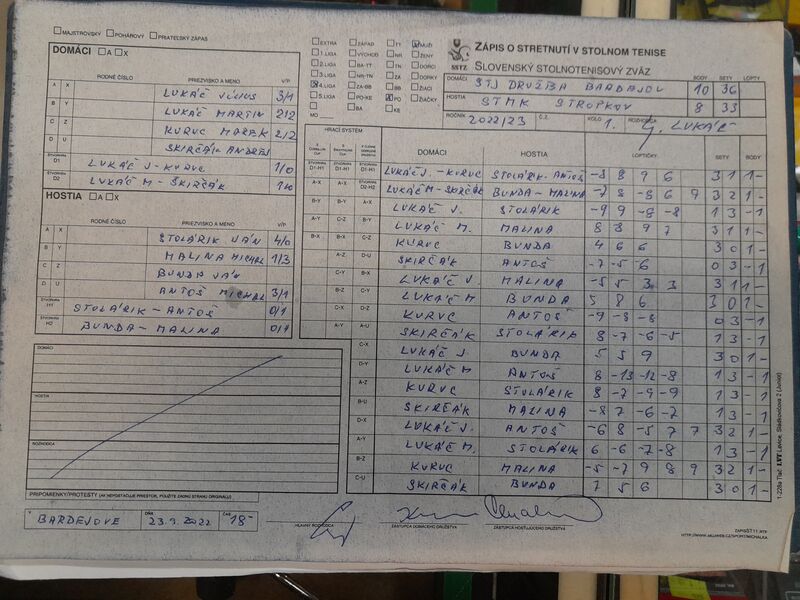 MAJSTROVSKÝ POHÁROVÝ PRIATEĽSKÝ ZÁPAS
DOMÁCI A X
RODNÉ ČÍSLO PRIEZVISKO A MENO V/P
A X LUKÁČ JÚLIUS 3/1
B Y LUKÁČ MARTIN 2/2
C Z KURUC MAREK 2/2
D U SKIRČÁK ANDREJ
ŠTVORHRA D1 LUKÁČ J - KURUC 1/0
ŠTVORHRA D2 LUKÁČ M - ŠKIRČÁK 1/0
HOSTIA A X
RODNÉ ČÍSLO PRIEZVISKO A MENO V/P
A X STOLÁRIK JÁN 4/0
B Y MALINA MICHAL 1/3
C Z BUNDA JÁN
D U ANTOŠ MICHAL 3/1
ŠTVORHRA H1 STOLÁRIK - ANTOŠ 0/1
ŠTVORHRA H2 BUNDA - MALINA 0/1
DOMÁCI
HOSTIA
ROZHODCA
PRIPOMIENKY/PROTESTY (AK NEPOSTAČUJE PRIESTOR, POUŽITE ZADNÚ STRANU ORIGINÁLU)
V BARDEJOVE DŇA 23.9.2022 ČAS 18-
HLAVNÝ ROZHODCA
ZÁSTUPCA DOMÁCEHO DRUŽSTVA
ZÁSTUPCA HOSŤUJÚCEHO DRUŽSTVA
EXTRA ZÁPAD TT MUŽI
1.LIGA VÝCHOD NR ŽENY
2.LIGA BA-TT TN DORCI
3.LIGA NR-TN ZA DORKY
4.LIGA ZA-BB BB ŽIACI
5. PO-KE PO ŽIAČKY
BA KE
MO
SSTZ
ZÁPIS O STRETNUTÍ V STOLNOM TENISE
SLOVENSKÝ STOLNOTENISOVÝ ZVÄZ
BODY SETY LOPTY
DOMÁCI STJ DRUŽBA BARDEJOV 10 36
HOSTIA STMK STROPKOV 8 33
ROČNÍK 2022/23 Č.Z. KOLO 1. ROZHODCA J. LUKÁČ
HRACÍ SYSTÉM
DOMÁCI HOSTIA LOPTIČKY SETY BODY
LUKÁČ J. - KURUC STOLÁRIK - ANTOŠ -8 8 9 6 3 1 1 -
LUKÁČ M - SKIRČÁK BUNDA - MALINA -7 8 -8 6 9 3 2 1 -
LUKÁČ J. STOLÁRIK -9 9 -8 -8 1 3 - 1
LUKÁČ M. MALINA 8 8 9 7 3 1 1 -
KURUC BUNDA 4 6 6 3 0 1 -
SKIRČÁK ANTOŠ -7 -5 -6 0 3 - 1
LUKÁČ J. MALINA -5 5 3 3 3 1 1 -
LUKÁČ M BUNDA 5 8 6 3 0 1 -
KURUC ANTOŠ -9 -8 -8 0 3 - 1
SKIRČÁK STOLÁRIK 8 -7 -6 -5 1 3 - 1
LUKÁČ J. BUNDA 5 5 9 3 0 1 -
LUKÁČ M ANTOŠ 8 -13 -12 -8 1 3 - 1
KURUC STOLÁRIK 8 -7 -9 -9 1 3 - 1
SKIRČÁK MALINA -8 7 -6 -7 1 3 - 1
LUKÁČ J. ANTOŠ -6 8 -5 7 7 3 2 1 -
LUKÁČ M. STOLÁRIK 6 -6 -7 -8 1 3 - 1
KURUC MALINA -5 -7 9 8 9 3 2 1 -
SKIRČÁK BUNDA 7 5 6 3 0 1 -
ZAPISST11.RTF
HTTP://WWW.AKUWEB.CZ/SPORT/MICHALKA